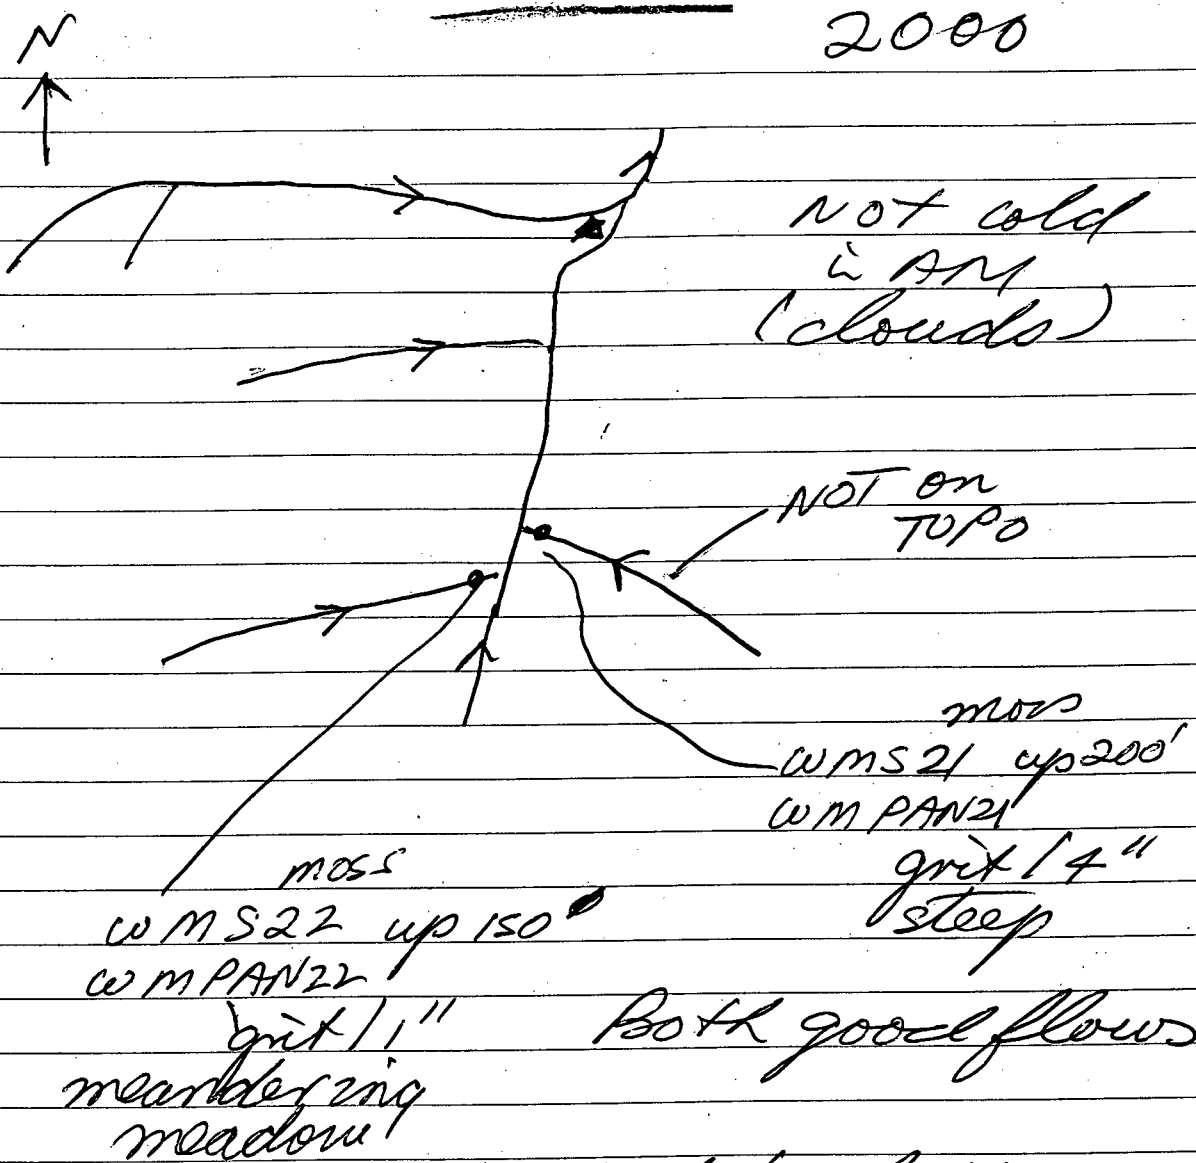 N
2000
Not cold
in AM
(clouds)
NOT on
TOPO
moss
WMS21 up 200'
WMPAN21
grit / 4"
steep
moss
WMS22 up 150'
WMPAN22
grit / 1"
meandering
meadow
Both good flows